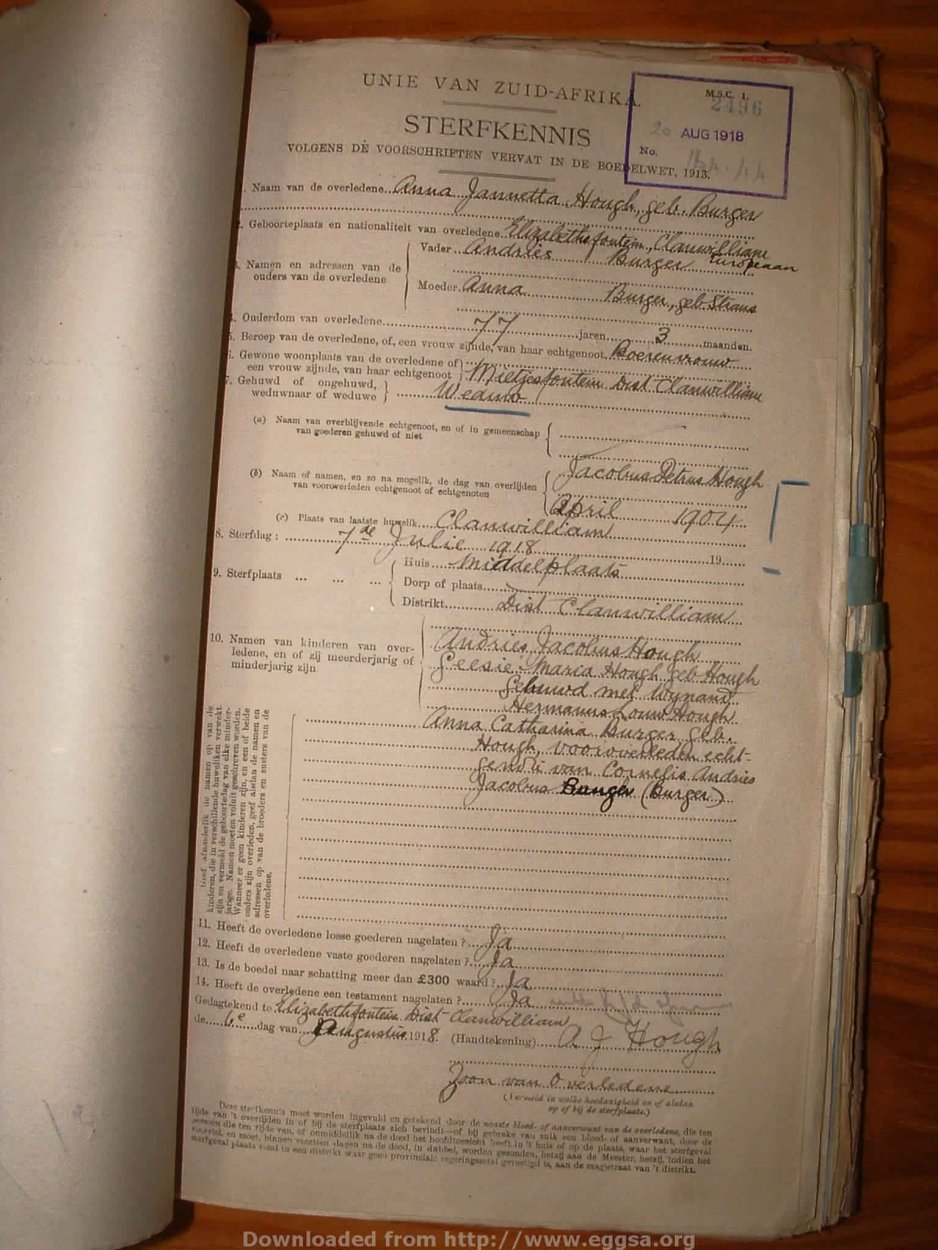 UNIE VAN ZUID-AFRIKA.
M.S.C. 1.
2496
20 AUG 1918
No.
STERFKENNIS
VOLGENS DE VOORSCHRIFTEN VERVAT IN DE BOEDELWET, 1913.
1. Naam van de overledene Anna Jannetta Hough, geb. Burger
2. Geboorteplaats en nationaliteit van overledene Elizabethsfontein, Clanwilliam
Europeaan
3. Namen en adressen van de ouders van de overledene
Vader Andries Burger
Moeder Anna Burger, geb. Straus
4. Ouderdom van overledene 77 jaren 3 maanden.
5. Beroep van de overledene, of, een vrouw zijnde, van haar echtgenoot Boerenvrouw
6. Gewone woonplaats van de overledene of een vrouw zijnde, van haar echtgenoot Mietjesfontein Dist Clanwilliam
7. Gehuwd of ongehuwd, weduwnaar of weduwe Weduwe
(a) Naam van overblijvende echtgenoot, en of in gemeenschap van goederen gehuwd of niet
(b) Naam of namen, en zo na mogelik, de dag van overlijden van vooroverleden echtgenoot of echtgenoten
Jacobus Petrus Hough
April 1904
(c) Plaats van laatste huwelik Clanwilliam
8. Sterfdag : 7de Julie 1918 19
9. Sterfplaats ... ... ...
Huis Middelplaats
Dorp of plaats
Distrikt Dist Clanwilliam
10. Namen van kinderen van overledene, en of zij meerderjarig of minderjarig zijn
Andries Jacobus Hough
Geesie Maria Hough geb Hough
Gehuwd met Wynand
Hermanus Louw Hough
Anna Catharina Burger geb.
Hough, vooroverleden echt-
genote van Cornelis Andries
Jacobus Burger (Burger)
Geef afzonderlik de namen op van de
kinderen, die in verschillende huweliken verwekt
zijn en vermeld de geboortedag van elke minder-
jarige. Namen moeten voluit geschreven worden.
Wanneer er geen kinderen zijn, en een of beide
ouders zijn overleden, geef alsdan de namen en
adressen op van de broeders en zusters van de
overledene.
11. Heeft de overledene losse goederen nagelaten ? Ja
12. Heeft de overledene vaste goederen nagelaten ? Ja
13. Is de boedel naar schatting meer dan £300 waard ? Ja
14. Heeft de overledene een testament nagelaten ? Ja
Gedagtekend te Elizabethfontein Dist Clanwilliam
de 6e dag van Augustus 1918. (Handtekening) A J Hough
Zoon van Overledene
(Vermeld in welke hoedanigheid en of alsdan
op of bij de sterfplaats.)
Deze sterfkennis moet worden ingevuld en getekend door de naaste bloed- of aanverwant van de overledene, die ten
tijde van 't overlijden in of bij de sterfplaats zich bevindt—of bij gebreke van zulk een bloed- of aanverwant, door de
persoon die ten tijde van, of onmiddellik na de dood het hoofdtoezicht heeft in 't huis of op de plaats, waar het sterfgeval
voorviel, en moet, binnen veertien dagen na de dood, in dubbel, worden gezonden, hetzij aan de Meester, hetzij, indien het
sterfgeval plaats vond in een distrikt waar geen provinciale regeringszetel gevestigd is, aan de magistraat van 't distrikt.
Downloaded from http://www.eggsa.org